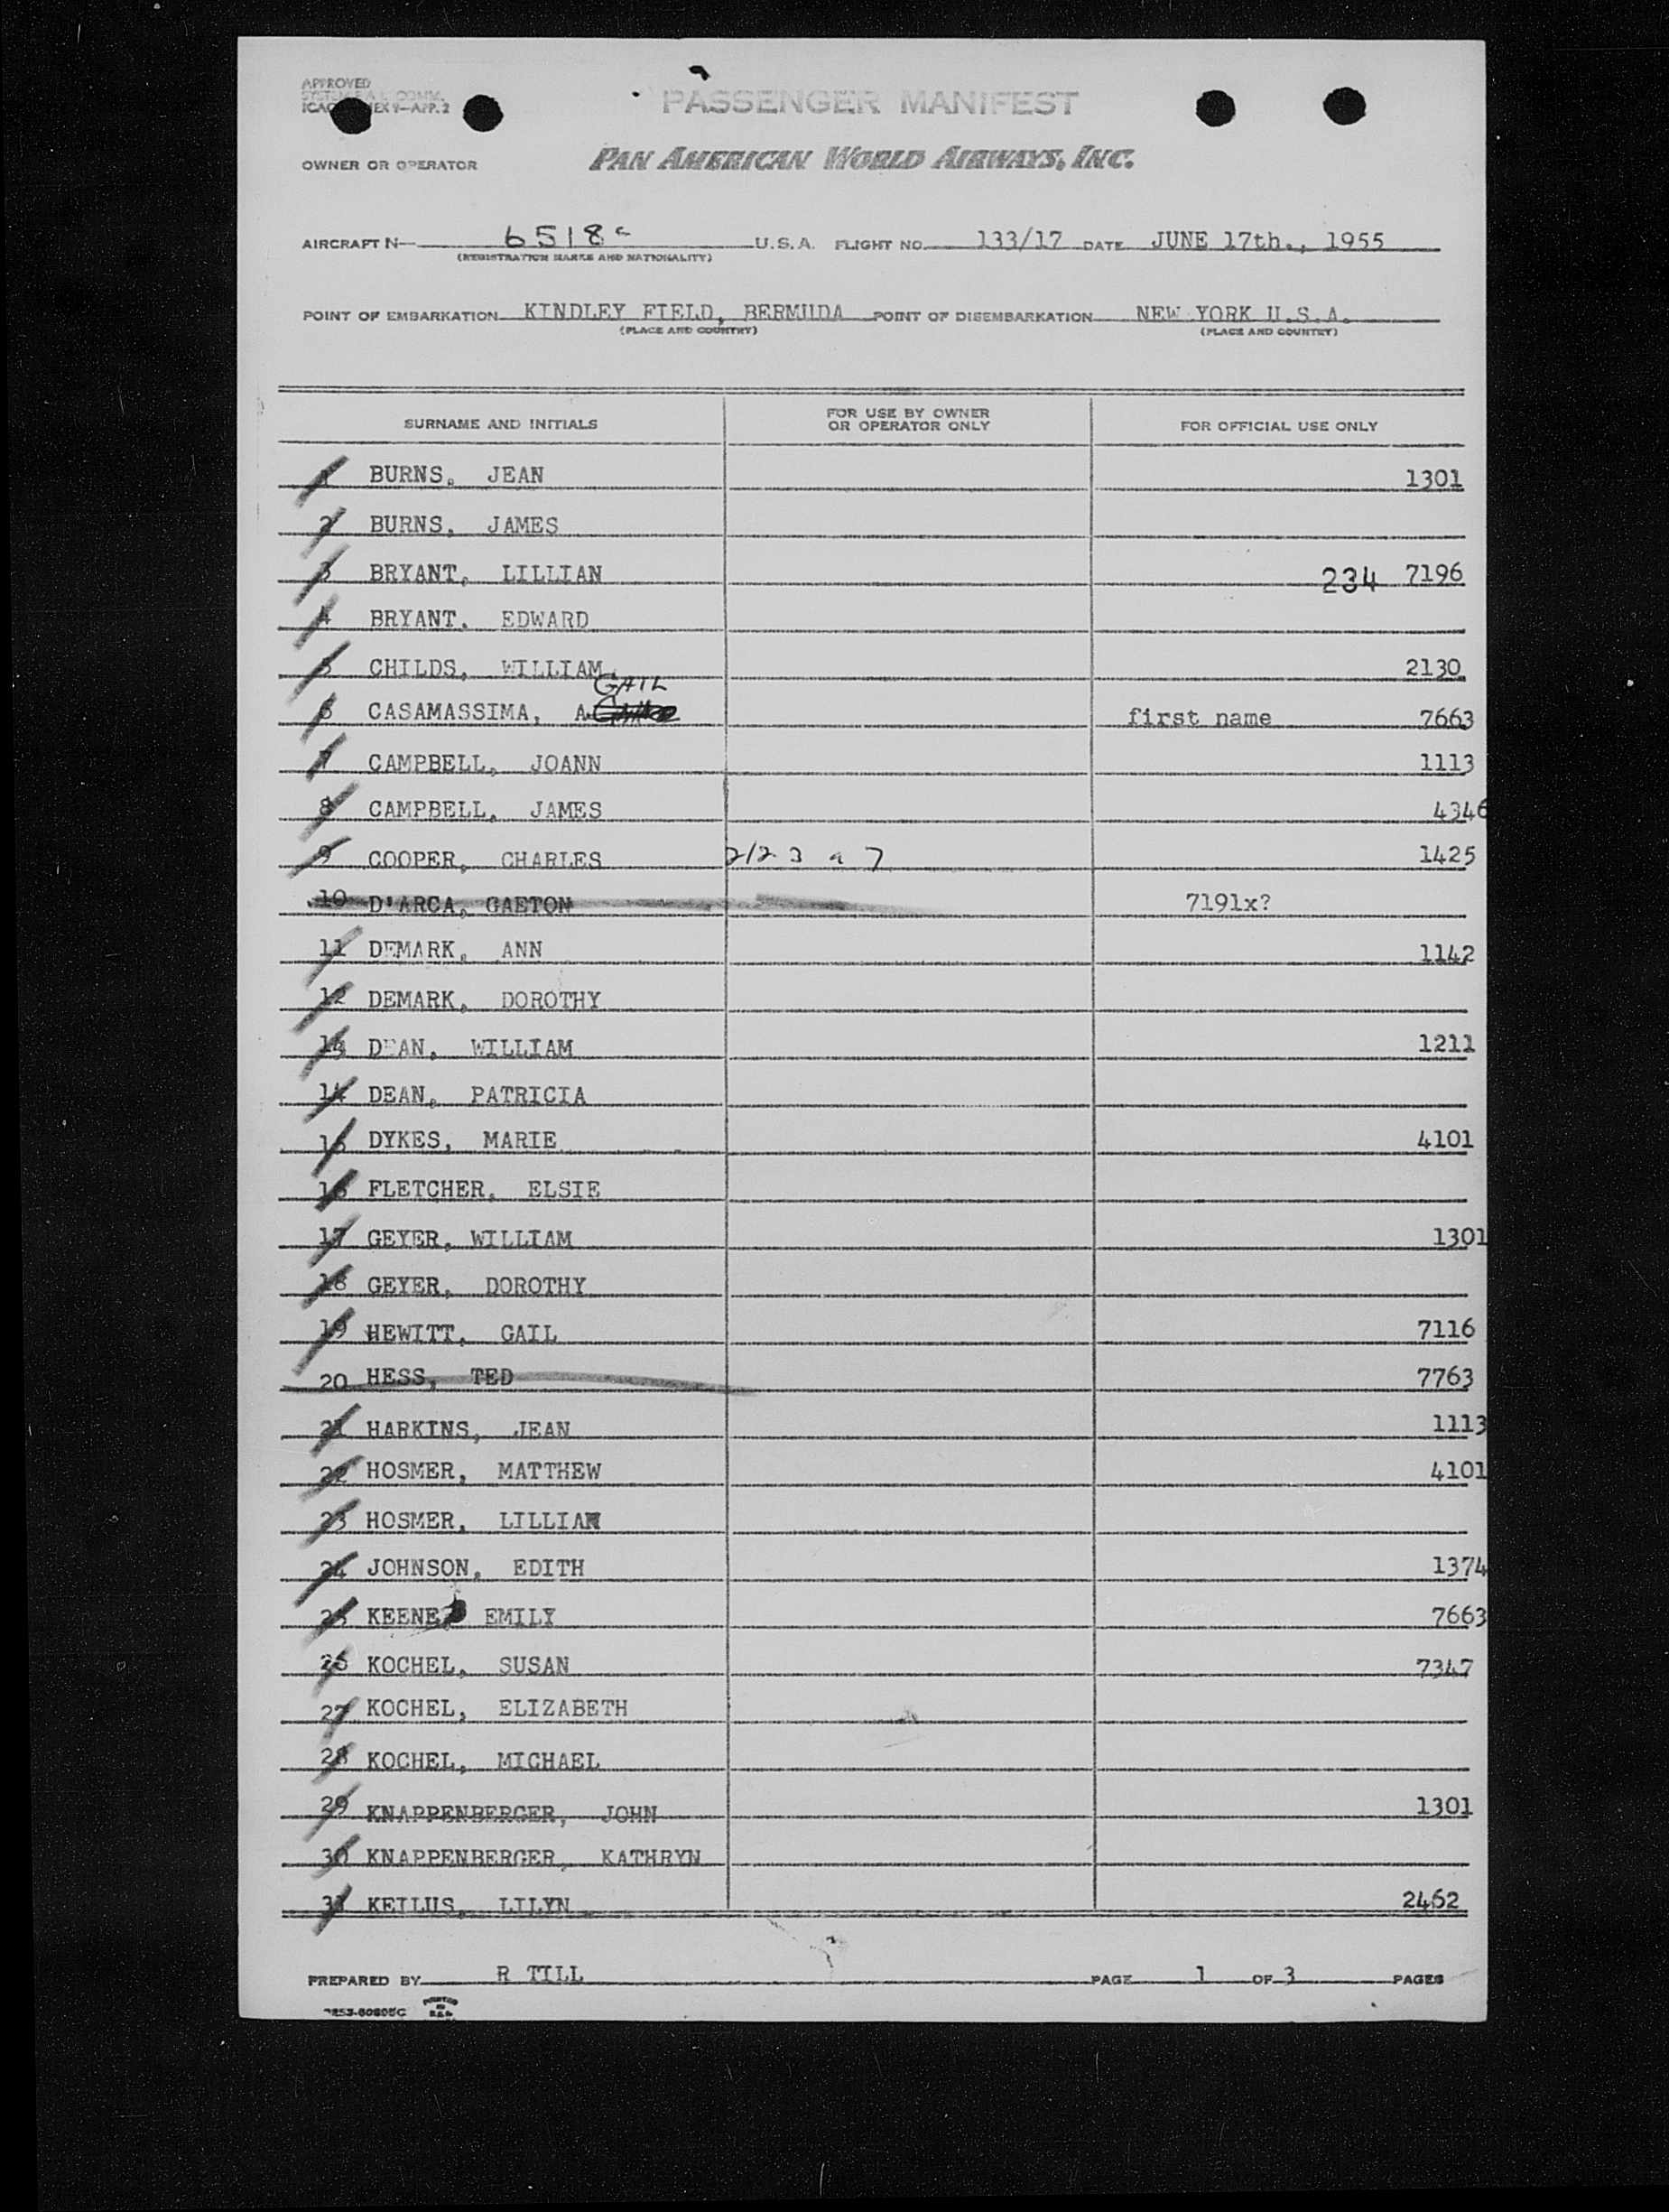 APPROVED
PASSENGER MANIFEST
ICAO EX 9—APP. 2
OWNER OR OPERATOR PAN AMERICAN WORLD AIRWAYS, INC.
AIRCRAFT N— 6518c U.S.A. FLIGHT NO. 133/17 DATE JUNE 17th., 1955
(REGISTRATION MARKS AND NATIONALITY)
POINT OF EMBARKATION KINDLEY FIELD, BERMUDA POINT OF DISEMBARKATION NEW YORK U.S.A.
(PLACE AND COUNTRY) (PLACE AND COUNTRY)
SURNAME AND INITIALS FOR USE BY OWNER OR OPERATOR ONLY FOR OFFICIAL USE ONLY
1 BURNS, JEAN 1301
2 BURNS, JAMES
3 BRYANT, LILLIAN 234 7196
4 BRYANT. EDWARD
5 CHILDS, WILLIAM 2130
GAIL
6 CASAMASSIMA, A. first name 7663
7 CAMPBELL, JOANN 1113
8 CAMPBELL, JAMES 4346
9 COOPER, CHARLES 2123 a 7 1425
10 D'ARCA, GAETON 7191x?
11 DEMARK, ANN 1142
12 DEMARK, DOROTHY
13 DEAN, WILLIAM 1211
14 DEAN, PATRICIA
15 DYKES, MARIE 4101
16 FLETCHER, ELSIE
17 GEYER, WILLIAM 1301
18 GEYER, DOROTHY
19 HEWITT, GAIL 7116
20 HESS, TED 7763
21 HARKINS, JEAN 1113
22 HOSMER, MATTHEW 4101
23 HOSMER, LILLIAN
24 JOHNSON, EDITH 1374
25 KEENE, EMILY 7663
26 KOCHEL, SUSAN 7347
27 KOCHEL, ELIZABETH
28 KOCHEL, MICHAEL
29 KNAPPENBERGER, JOHN 1301
30 KNAPPENBERGER, KATHRYN
31 KEILUS, LILYN 2462
PREPARED BY R TILL PAGE 1 OF 3 PAGES
PRINTED IN U.S.A.